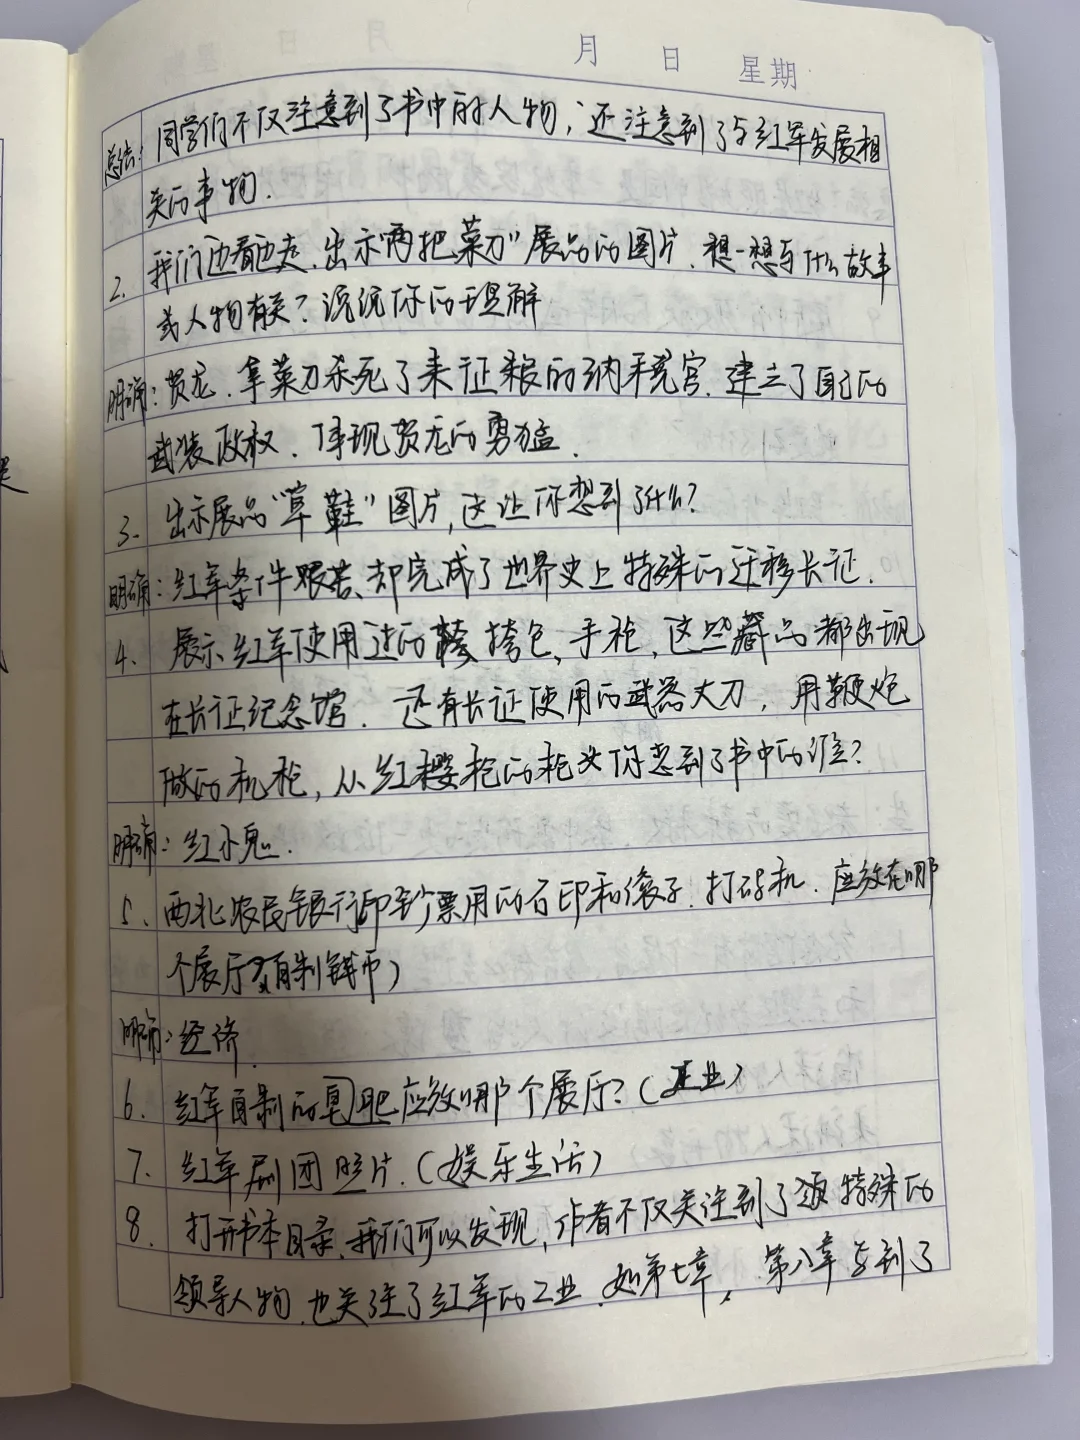 月 日 星期
总结: 同学们不仅注意到了书中的人物,还注意到了与红军发展相
关的事物.
2. 我们边看边走.出示"两把菜刀"展品的图片.想一想与什么故事
或人物有关?说说你的理解
明确: 贺龙.拿菜刀杀死了来征粮的纳税官.建立了自己的
武装政权.体现贺龙的勇猛.
3. 出示展品"草鞋"图片,这让你想到了什么?
明确: 红军条件艰苦、却完成了世界史上特殊的迁移长征.
4. 展示红军使用过的挎包、手枪,这些藏品都出现
在长征纪念馆.还有长征使用的武器大刀,用鞭炮
做的机枪,从红樱枪的枪头你想到了书中的谁?
明确: 红小鬼.
5. 西北农民银行印钞票用的石印和滚子.打码机.应放在哪
个展厅?(自制钱币)
明确: 经济.
6. 红军自制的肥应放哪个展厅?(工业)
7. 红军剧团照片.(娱乐生活)
8. 打开书本目录,我们可以发现,作者不仅关注到了特殊的
领导人物.也关注了红军的工业.如第七章,第八章写到了